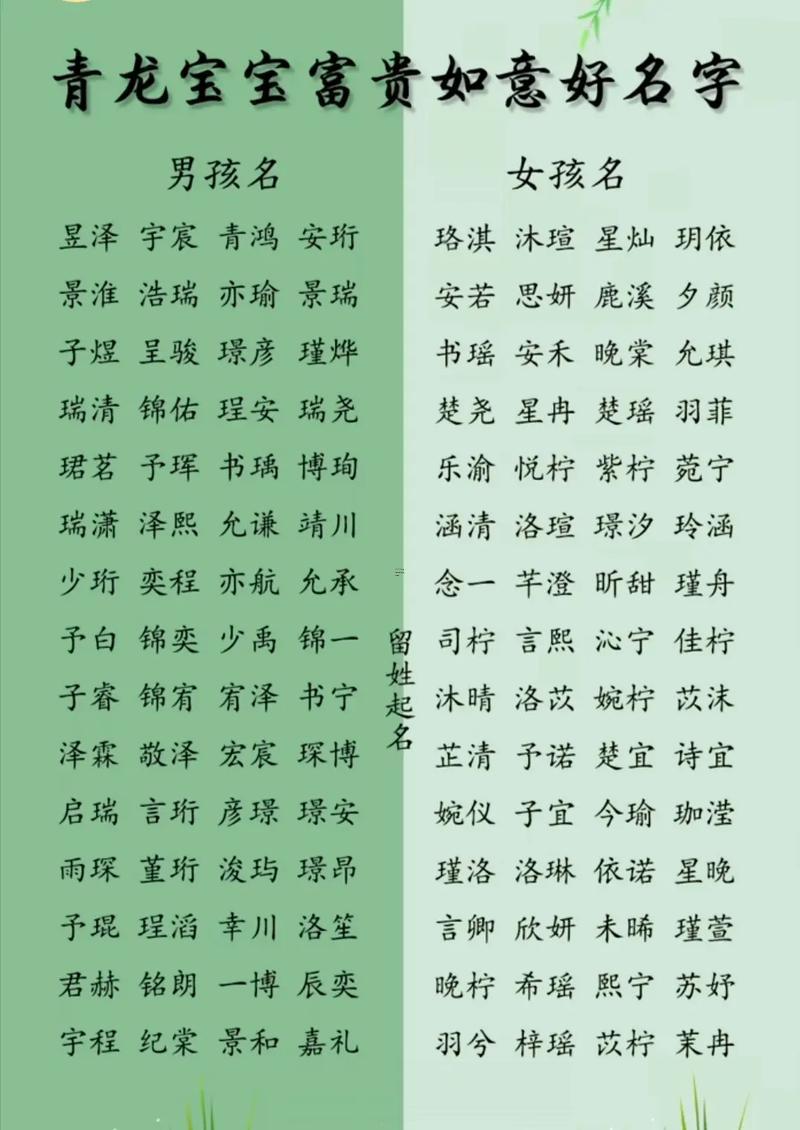 青龙宝宝富贵如意好名字
男孩名
昱泽 宇宸 青鸿 安珩
景淮 浩瑞 亦瑜 景瑞
子煜 呈骏 璟彦 瑾烨
瑞清 锦佑 珵安 瑞尧
珺茗 予珲 书瑀 博珣
瑞潇 泽熙 允谦 靖川
少珩 奕程 亦航 允承
予白 锦奕 少禹 锦一
子睿 锦宥 宥泽 书宁
泽霖 敬泽 宏宸 琛博
启瑞 言珩 彦璟 璟安
雨琛 堇珩 浚玙 璟昂
予琨 珵滔 幸川 洛笙
君赫 铭朗 一博 辰奕
宇程 纪棠 景和 嘉礼
留姓起名
女孩名
珞淇 沐瑄 星灿 玥依
安若 思妍 鹿溪 夕颜
书瑶 安禾 晚棠 允琪
楚尧 星冉 楚瑶 羽菲
乐渝 悦柠 紫柠 菀宁
涵清 洛瑄 璟汐 玲涵
念一 芊澄 昕甜 瑾舟
司柠 言熙 沁宁 佳柠
沐晴 洛苡 婉柠 苡沫
芷清 予诺 楚宜 诗宜
婉仪 子宜 今瑜 珈滢
瑾洛 洛琳 依诺 星晚
言卿 欣妍 未晞 瑾萱
晚柠 希瑶 熙宁 苏妤
羽兮 梓瑶 苡柠 茉冉